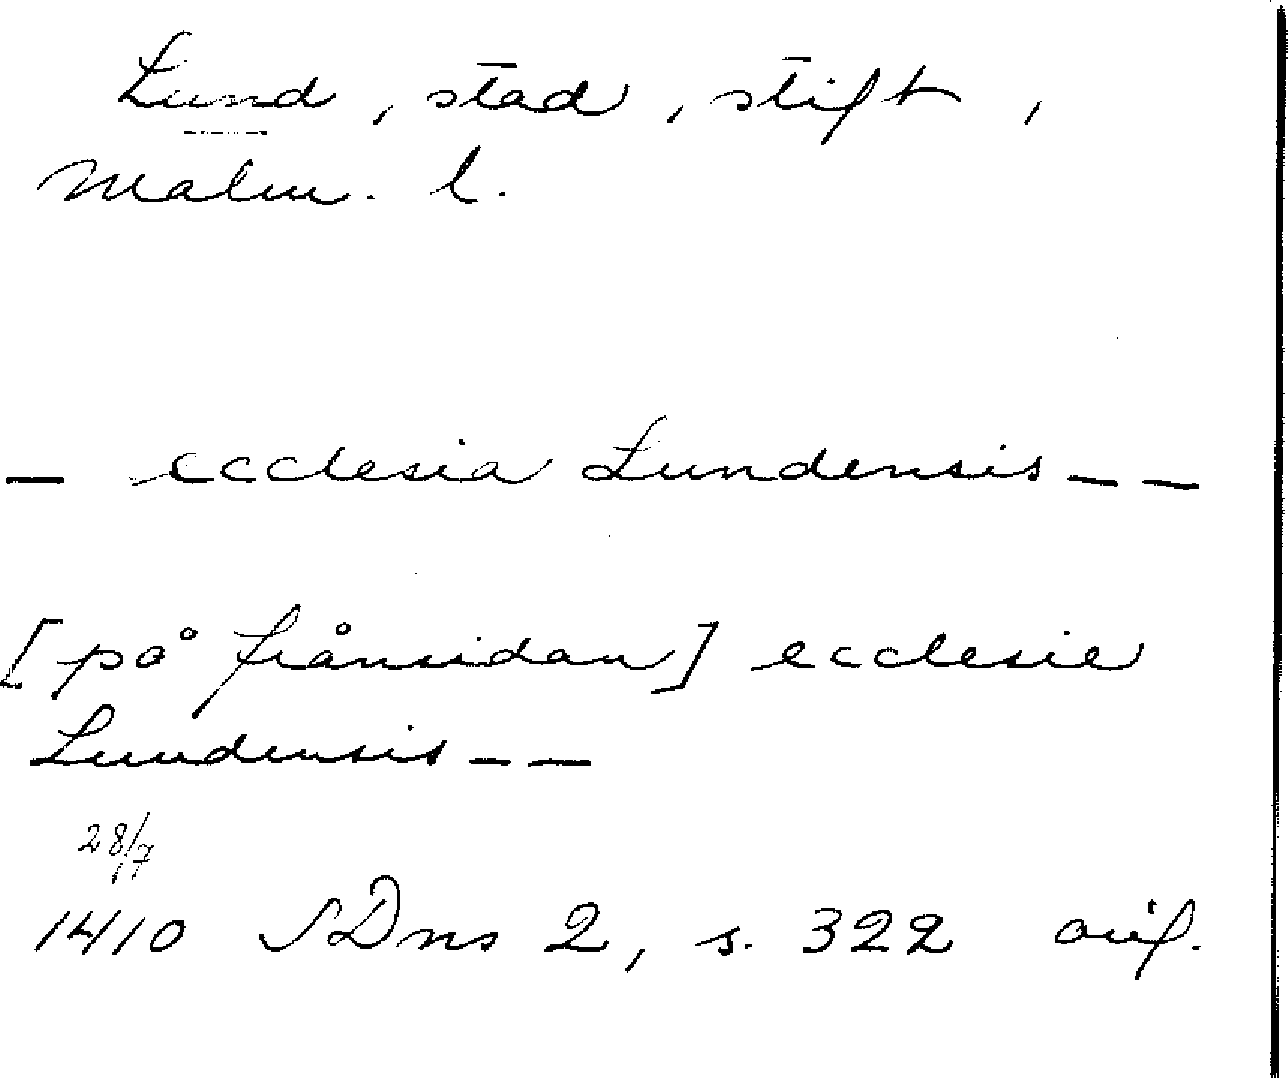 Lund, stad, stift,
Malm. l.
– ecclesia Lundensis – –
[på frånsidan] ecclesie
Lundensis – –
28/7
1410 SDns 2, s. 322 orif.